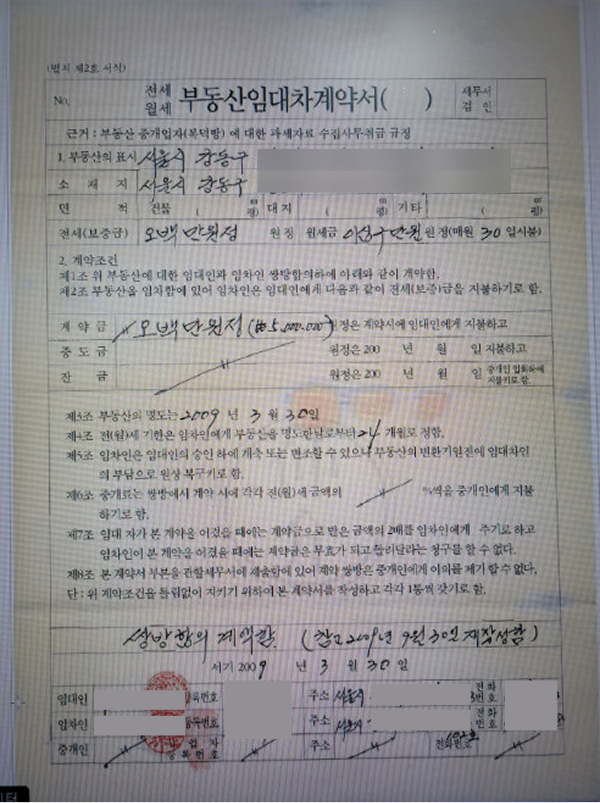 (별지 제2호 서식)
No.
전세
월세
부동산임대차계약서( )
세무서
검인
근거 : 부동산 중개업자(복덕방) 에 대한 과세자료 수집사무취급 규정
1. 부동산의 표시 서울시 강동구
소재지 서울시 강동구
면적 건물 ( ㎡ 평) 대지 ( ㎡ 평) 기타 ( ㎡ 평)
전세(보증금) 오백만원정 원정 월세금 만원 원정(매월 30일시불)
2. 계약조건
제1조 위 부동산에 대한 임대인과 임차인 쌍방합의하에 아래와 같이 계약함.
제2조 부동산을 임차함에 있어 임차인은 임대인에게 다음과 같이 전세(보증)금을 지불하기로 함.
계약금 오백만원정(₩5,000,000) 원정은 계약시에 임대인에게 지불하고
중도금 원정은 200 년 월 일 지불하고
잔금 원정은 200 년 월 일 중개인 입회하에 지불키로 함.
제3조 부동산의 명도는 2009년 3월 30일
제4조 전(월)세 기한은 임차인에게 부동산을 명도한날로부터 24 개월로 정함.
제5조 임차인은 임대인의 승인 하에 개축 또는 변조할 수 있으나 부동산의 변환기일전에 임대차인
의 부담으로 원상 복구키로 함.
제6조 중개료는 쌍방에서 계약 시에 각각 전(월)세 금액의 %씩을 중개인에게 지불
하기로 함.
제7조 임대 자가 본 계약을 어겼을 때에는 계약금으로 받은 금액의 2배를 임차인에게 주기로 하고
임차인이 본 계약을 어겼을 때에는 계약금은 무효가 되고 돌려달라는 청구를 할 수 없다.
제8조 본 계약서 부본을 관할세무서에 제출함에 있어 계약 쌍방은 중개인에게 이의를 제기 할 수 없다.
단 : 위 계약조건을 틀림없이 지키기 위하여 본 계약서를 작성하고 각각 1통씩 갖기로 함.
쌍방합의 계약함. (참고 2009년 9월 30일 재작성함)
서기 2009년 3월 30일
임대인 등록번호 주소 서울시 전화번호
임차인 등록번호 주소 서울시 전화번호
중개인 업자등록번호 주소 전화번호